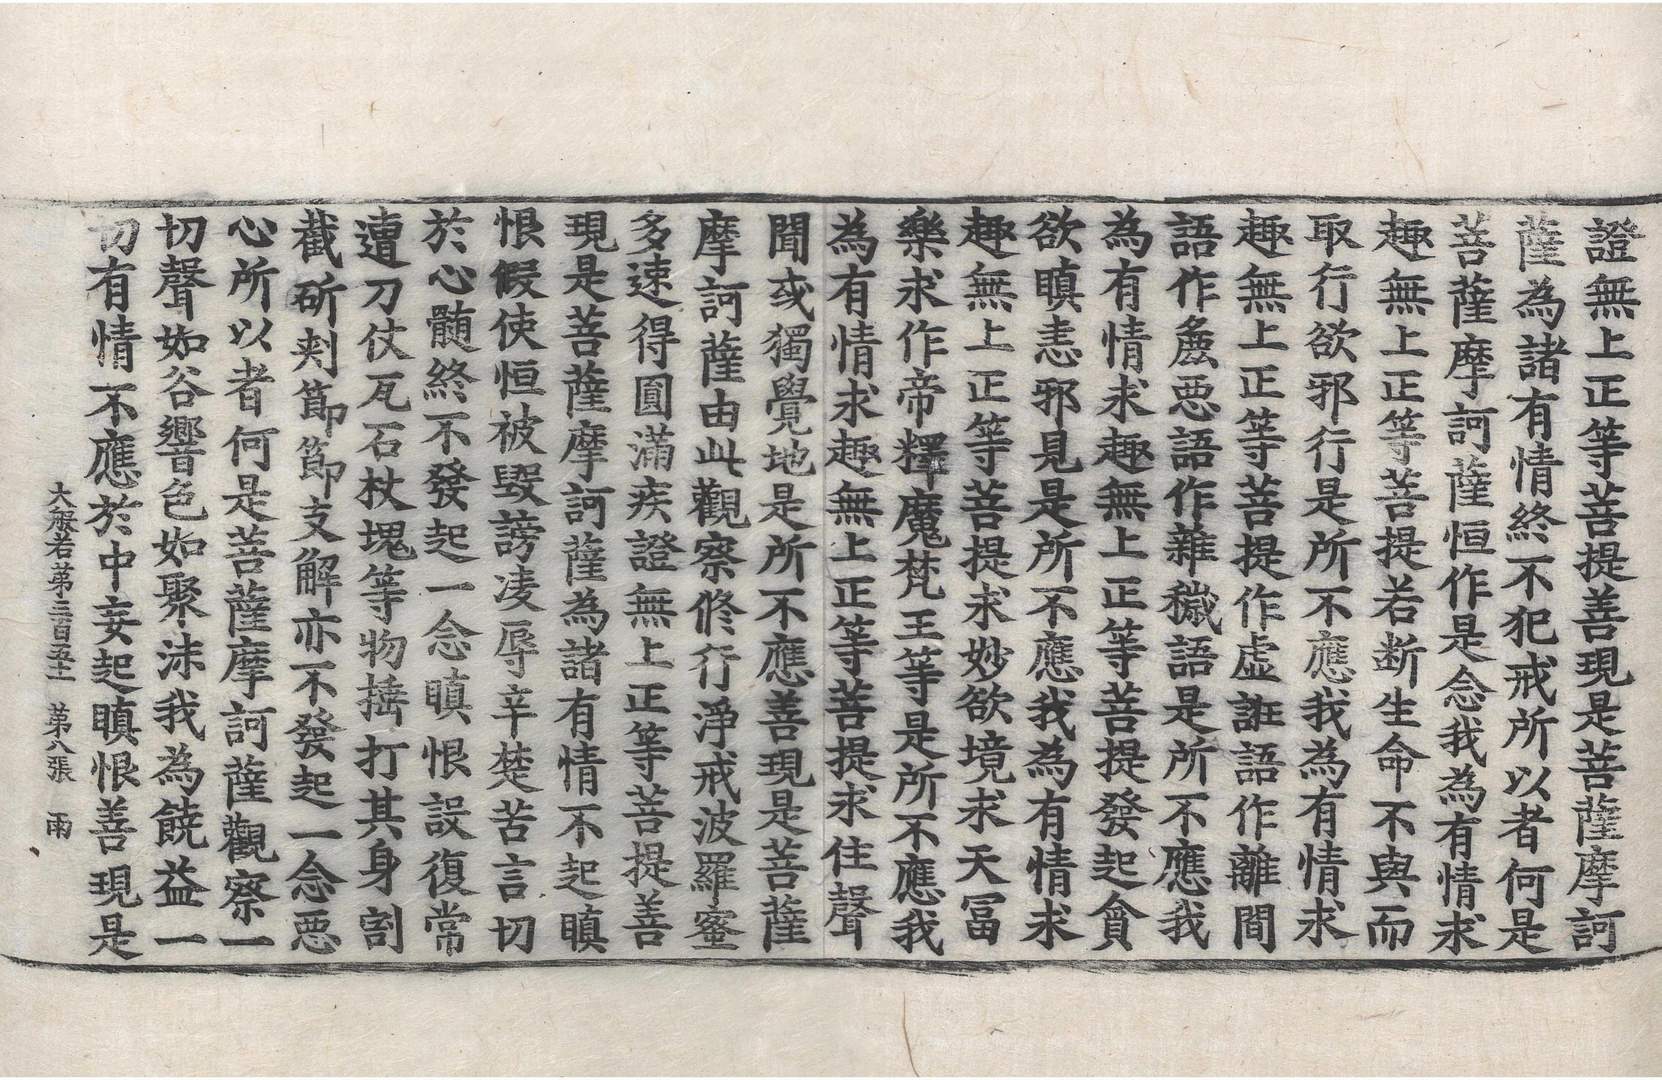 證無上正等菩提善現是菩薩摩訶
薩為諸有情終不犯戒所以者何是
菩薩摩訶薩恒作是念我為有情求
趣無上正等菩提若断生命不與而
取行欲邪行是所不應我為有情求
趣無上正等菩提作虛誑語作離間
語作麁惡語作雜穢語是所不應我
為有情求趣無上正等菩提發起貪
欲瞋恚邪見是所不應我為有情求
趣無上正等菩提求妙欲境求天冨
樂求作帝釋魔梵王等是所不應我
為有情求趣無上正等菩提求住聲
聞或獨覺地是所不應善現是菩薩
摩訶薩由此觀察修行淨戒波羅蜜
多速得圓滿疾證無上正等菩提善
現是菩薩摩訶薩為諸有情不起瞋
恨假使恒被毀謗凌辱辛楚苦言切
於心髓終不發起一念瞋恨設復常
遭刀仗瓦石杖塊等物捶打其身割
截斫刾節節支解亦不發起一念惡
心所以者何是菩薩摩訶薩觀察一
切聲如谷響色如聚沫我為饒益一
切有情不應於中妄起瞋恨善現是
大般若第三百五十一 第八張 雨